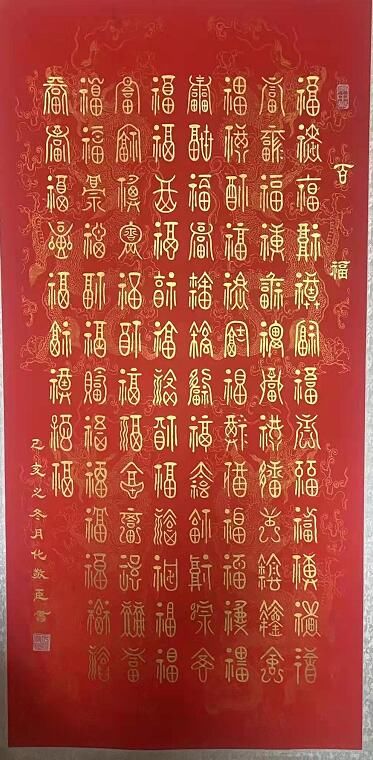 百福
福福福福福福福福福福福福福
福福福福福福福福福福福福福
福福福福福福福福福福福福福
福福福福福福福福福福福福福
福福福福福福福福福福福福福
福福福福福福福福福福福福福
福福福福福福福福福福福福福
福福福福福福福福福
己亥之冬月化敬臣書